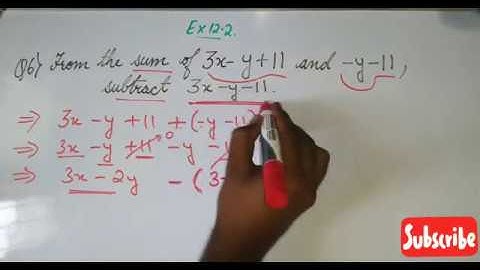 Ex 12.2.
Q6) From the sum of 3x-y+11 and -y-11,
subtract 3x-y-11.
⇒ 3x - y + 11 + (-y - 11)
⇒ 3x - y + 11 - y -
⇒ 3x - 2y - (3
Subscribe